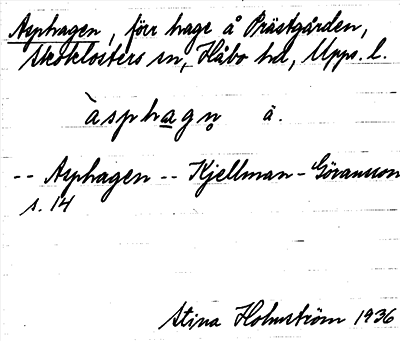 Asphagen, förr hage å Prästgården,
Skoklosters sn, Håbo hd, Upps. l.
àsphagn̥ à.
-- Asphagen -- Kjellman-Göranson
s. 14
Stina Holmström 1936